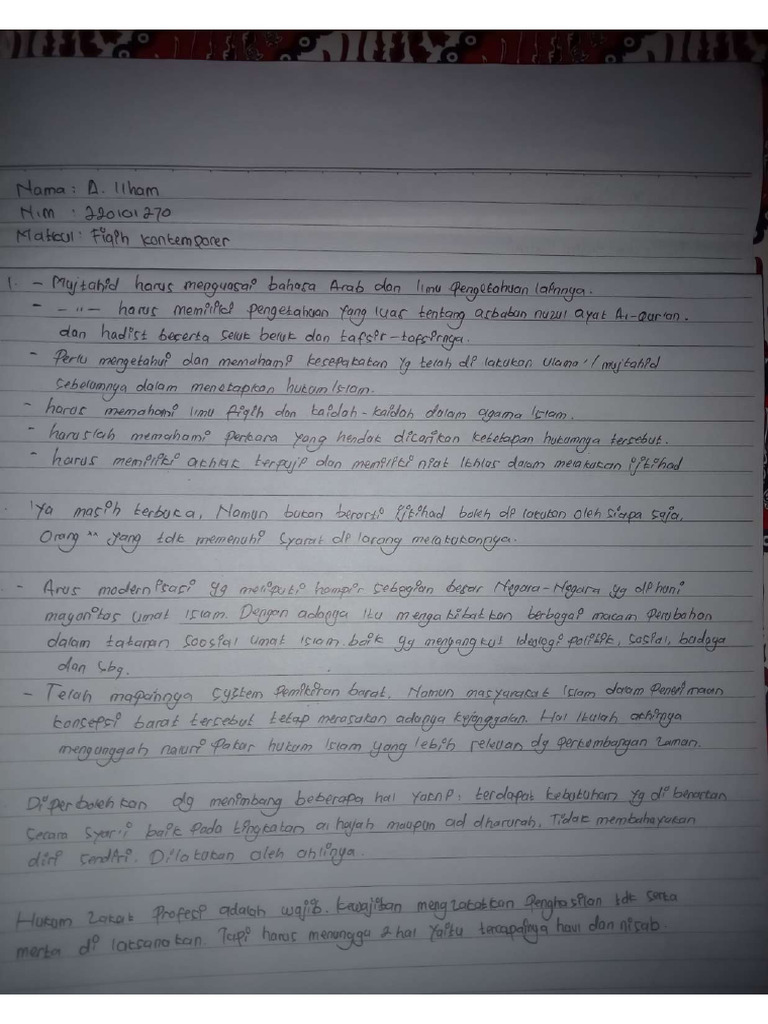 Nama : A. Ilham
Nim : 220101270
Matkul : Fiqih kontemporer
1. - Mujtahid harus menguasai bahasa Arab dan Ilmu Pengetahuan lainnya.
- - " - harus memiliki pengetahuan yang luas tentang asbabun nuzul ayat Al-Qur'an.
dan hadist beserta seluk beluk dan tafsir-tafsirnya.
- Perlu mengetahui dan memahami kesepakatan yg telah di lakukan ulama'/ mujtahid
sebelumnya dalam menetapkan hukum Islam.
- harus memahami Ilmu fiqih dan kaidah-kaidah dalam agama Islam.
- haruslah memahami perkara yang hendak dicarikan ketetapan hukumnya tersebut.
- harus memiliki akhlak terpuji dan memiliki niat Ikhlas dalam melakukan ijtihad
. Ya masih terbuka, Namun bukan berarti ijtihad boleh di lakukan oleh siapa saja,
Orang " yang tdk memenuhi syarat di larang melakukannya.
- Arus modernisasi yg meliputi hampir sebagian besar Negara-Negara yg dihuni
mayoritas umat Islam. Dengan adanya itu mengakibatkan berbagai macam Perubahan
dalam tatanan soosial umat Islam baik yg mengangkut Ideologi politik, sosial, budaya
dan sbg.
- Telah mapannya system Pemikiran barat, Namun masyarakat Islam dalam Penerimaan
konsepsi barat tersebut tetap merasakan adanya kejanggalan. Hal Itulah akhirnya
mengunggah naluri Pakar hukum Islam yang lebih relevan dg Perkembangan zaman.
Diperbolehkan dg menimbang beberapa hal yakni : terdapat kebutuhan yg di benarkan
secara syar'i baik pada tingkatan al hajah maupun ad dharurah, Tidak membahayakan
diri sendiri. Dilakukan oleh ahlinya.
Hukum zakat Profesi adalah wajib. kewajiban mengzakatkan Penghasilan tdk serta
merta di laksanakan. Tapi harus menunggu 2 hal yaitu tercapainya haul dan nisab.